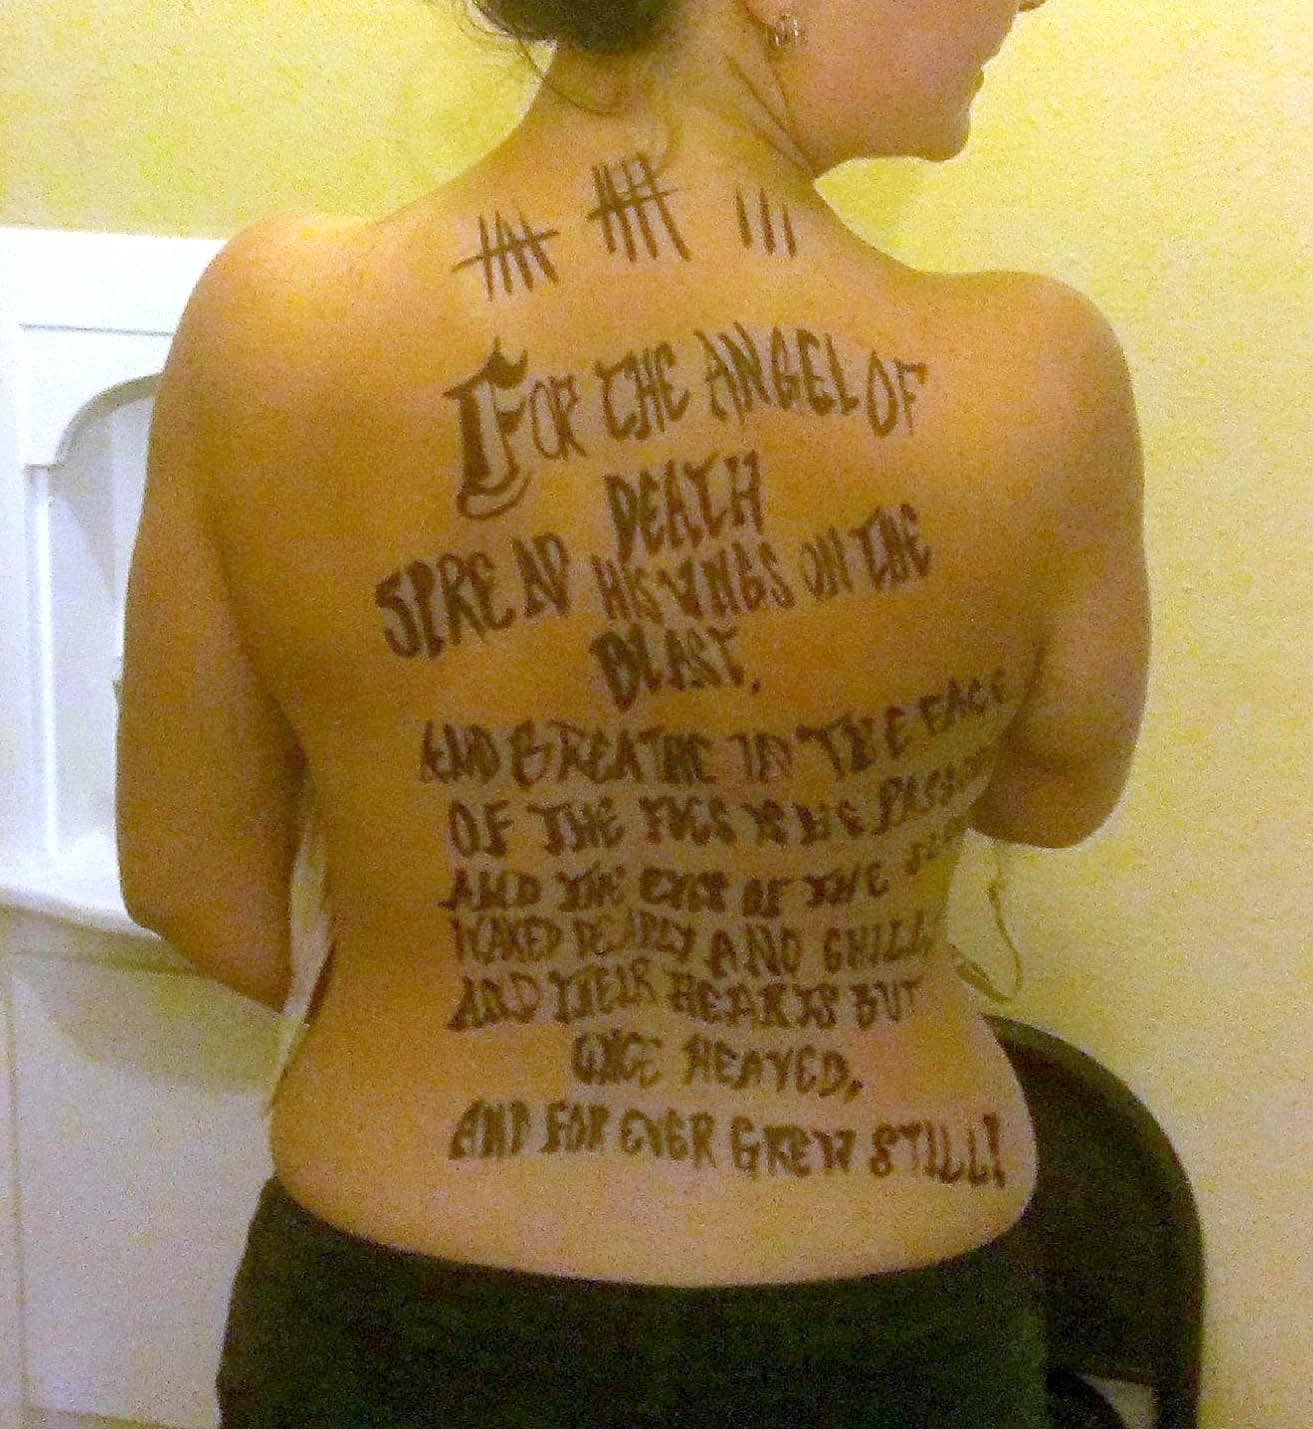 FOR THE ANGEL OF
DEATH
SPREAD HIS WINGS ON THE
BLAST,
AND BREATHE IN THE FACE
OF THE FOES AS HE PASS
AND THE EYES OF THE
WAXED DEADLY AND CHILL,
AND THEIR HEARTS BUT
ONCE HEAVED,
AND FOR EVER GREW STILL!